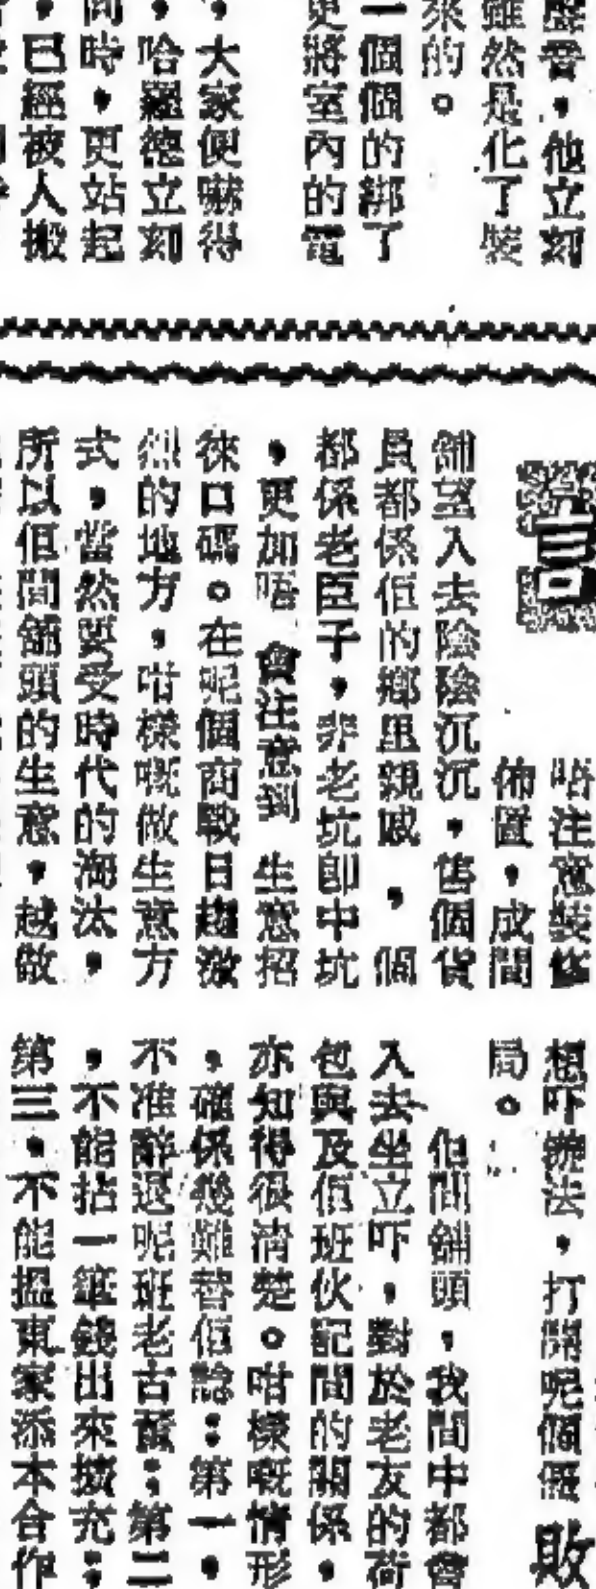 聲音，他立刻
雖然是化了裝
來的。
一個個的綁了
更將室內的電
，大家便嚇得
，哈羅德立刻
同時，更站起
，已經被人搬
言
唔注意裝修
佈置，成間
舖望入去陰陰沉沉，售個貨
員都係佢的鄉里親戚，個
都係老臣子，非老坑卽中坑
，更加唔會注意到生意招
徠口碼。在呢個商戰日趨激
烈的地方，咁樣嘅做生意方
式，當然要受時代的淘汰，
所以佢間舖頭的生意，越做
想吓辦法，打開呢個僵
局。
佢間舖頭，我間中都會
入去坐立吓，對於老友的荷
包與及佢班伙記間的關係，
亦知得很清楚。咁樣嘅情形
，確係幾難替佢諗：第一，
不准辭退呢班老古董；第二
，不能拈一筆錢出來擴充；
第三，不能搵東家添本合作
敗